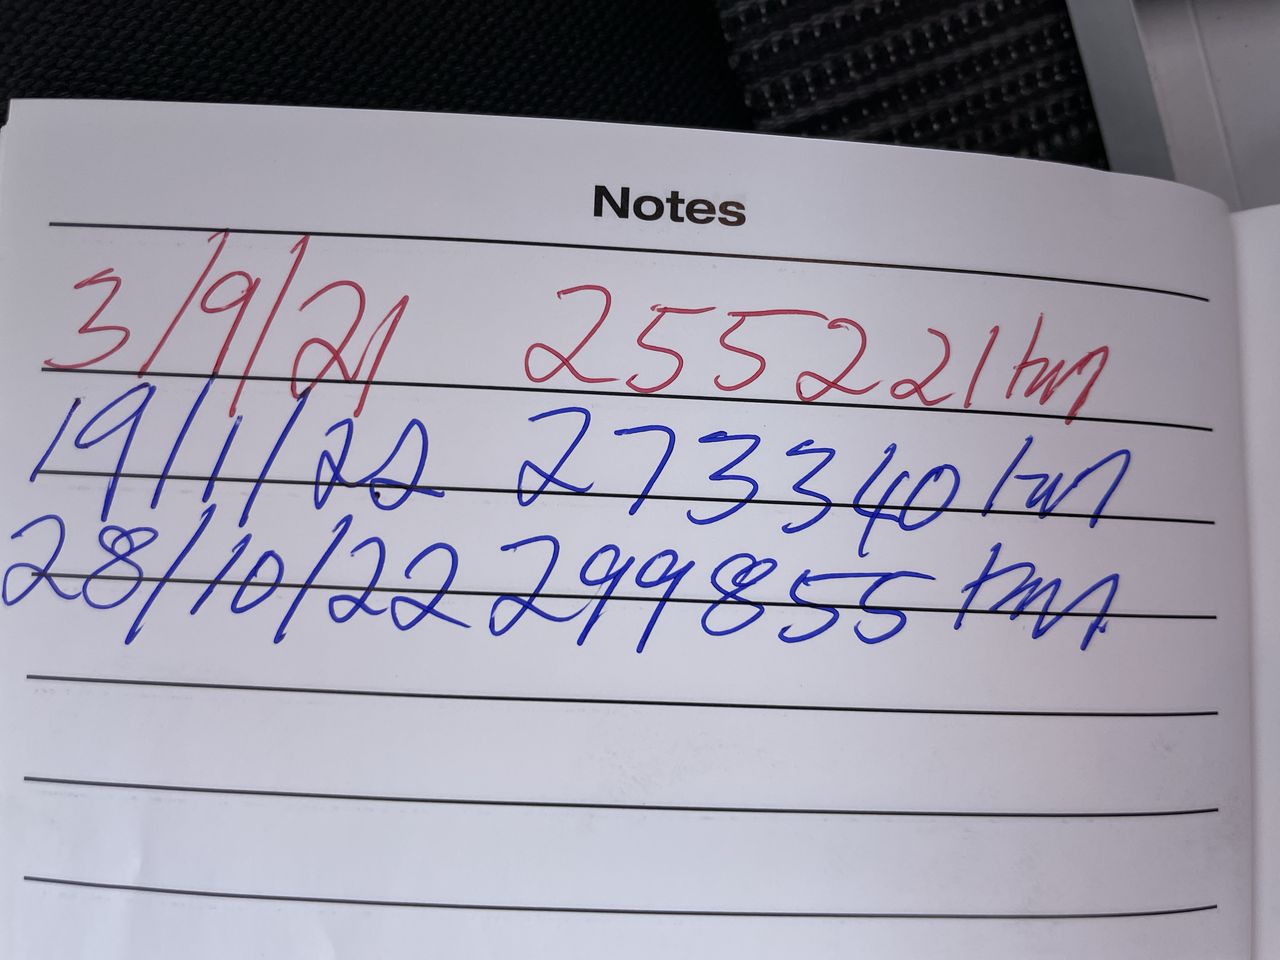 Notes
3/9/21 255221km
19/1/22 273340km
28/10/22 299855km